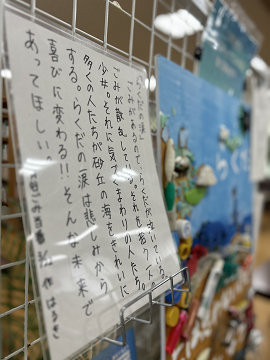 「らくだの涙」
ごみがあるのでらくだが泣いている。
ごみが散乱している。それを拾う一人の
少年。それに気づくまわりの人たち。
多くの人たちが砂丘の海をきれいに
する。らくだの涙は悲しみから
喜びに変わる!!そんな未来で
あってほしい。 作 はるき
らくだ